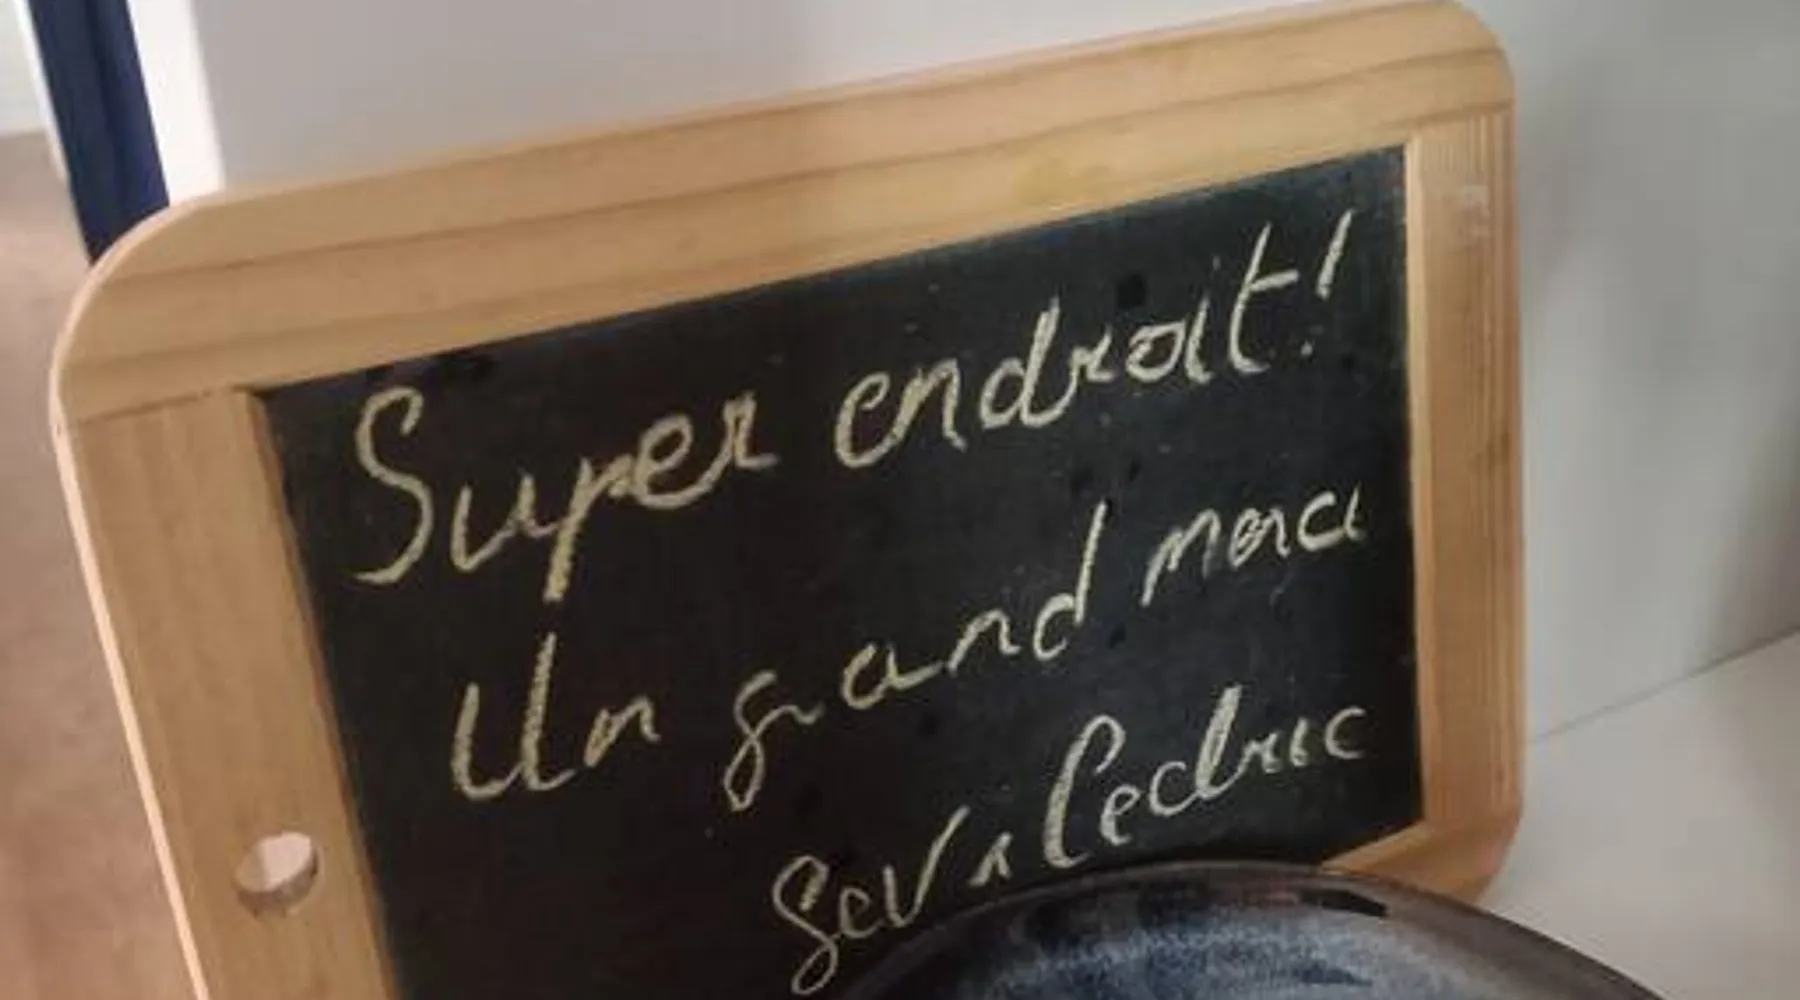 Super endroit!
Un grand merci
Sev & Cedric